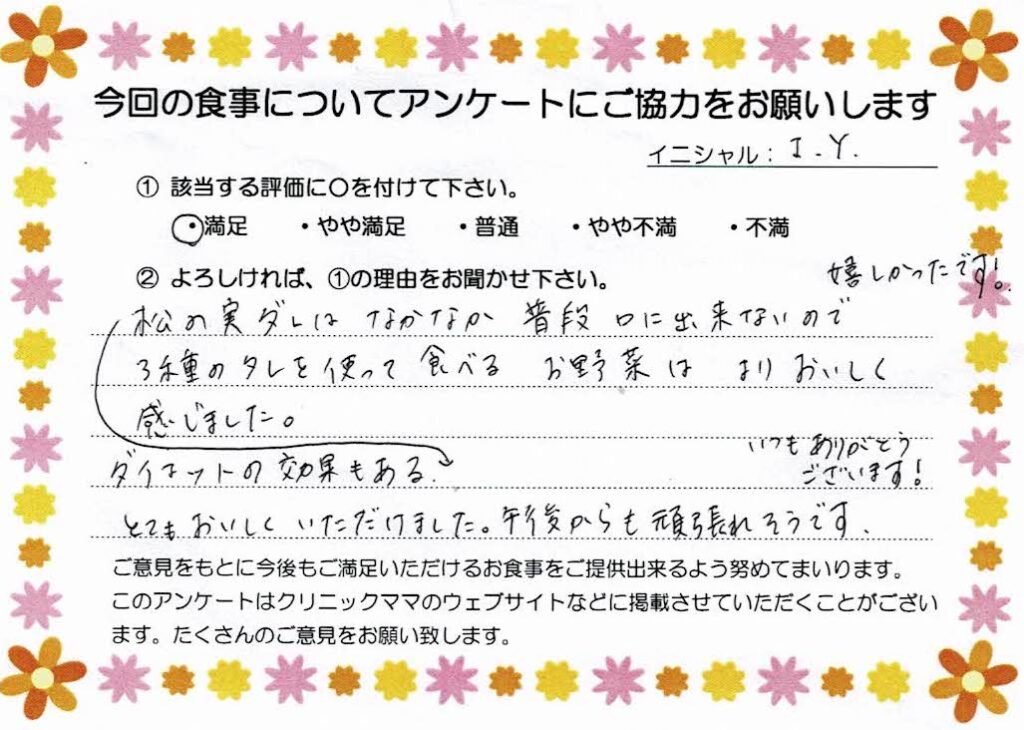 今回の食事についてアンケートにご協力をお願いします
イニシャル： I.Y.
① 該当する評価に〇を付けて下さい。
・満足 ・やや満足 ・普通 ・やや不満 ・不満
② よろしければ、①の理由をお聞かせ下さい。
嬉しかったです!
松の実ダレは なかなか 普段 口に出来ないので
3種のタレを使って 食べる お野菜は より おいしく
感じました。
ダイエットの 効果もある.
いつも ありがとう
ございます!
とても おいしく いただけました。午後からも 頑張れそうです.
ご意見をもとに今後もご満足いただけるお食事をご提供出来るよう努めてまいります。
このアンケートはクリニックママのウェブサイトなどに掲載させていただくことがござい
ます。たくさんのご意見をお願い致します。